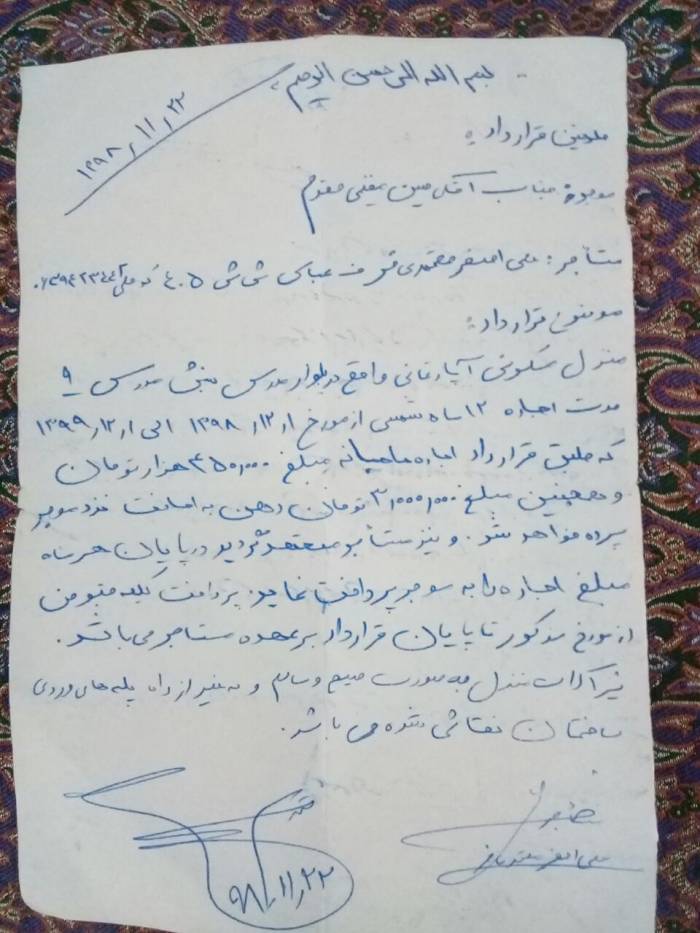 بسم الله الرحمن الرحیم
۱۳۹۸/۱۱/۲۲
طرفین قرارداد :
موجر: جناب آقای
مستأجر : علی اصغر عباس ش ش ۴۰۵ کد ملی
موضوع قرارداد :
منزل مسکونی آپارتمانی واقع در بلوار مدرس نبش مدرس ۹
مدت اجاره ۱۲ ماه شمسی از مورخ ۱۳۹۸/۱۲/۱ الی ۱۳۹۹/۱۲/۱
که طبق قرارداد اجاره ماهیانه مبلغ ۴۵۰،۰۰۰ هزار تومان
و همچنین مبلغ ۳،۰۰۰،۰۰۰ تومان رهن به امانت نزد موجر
سپرده خواهد شد. و نیز مستأجر متعهد گردید در پایان هر ماه
مبلغ اجاره را به موجر پرداخت نماید. پرداخت کلیه قبوض
از مورخ مذکور تا پایان قرارداد بر عهده مستاجر می باشد.
منزل به صورت صحیح و سالم و به غیر از راه پله های ورودی
ساختمان نقاشی شده می باشد.
علی اصغر
۹۸/۱۱/۲۲